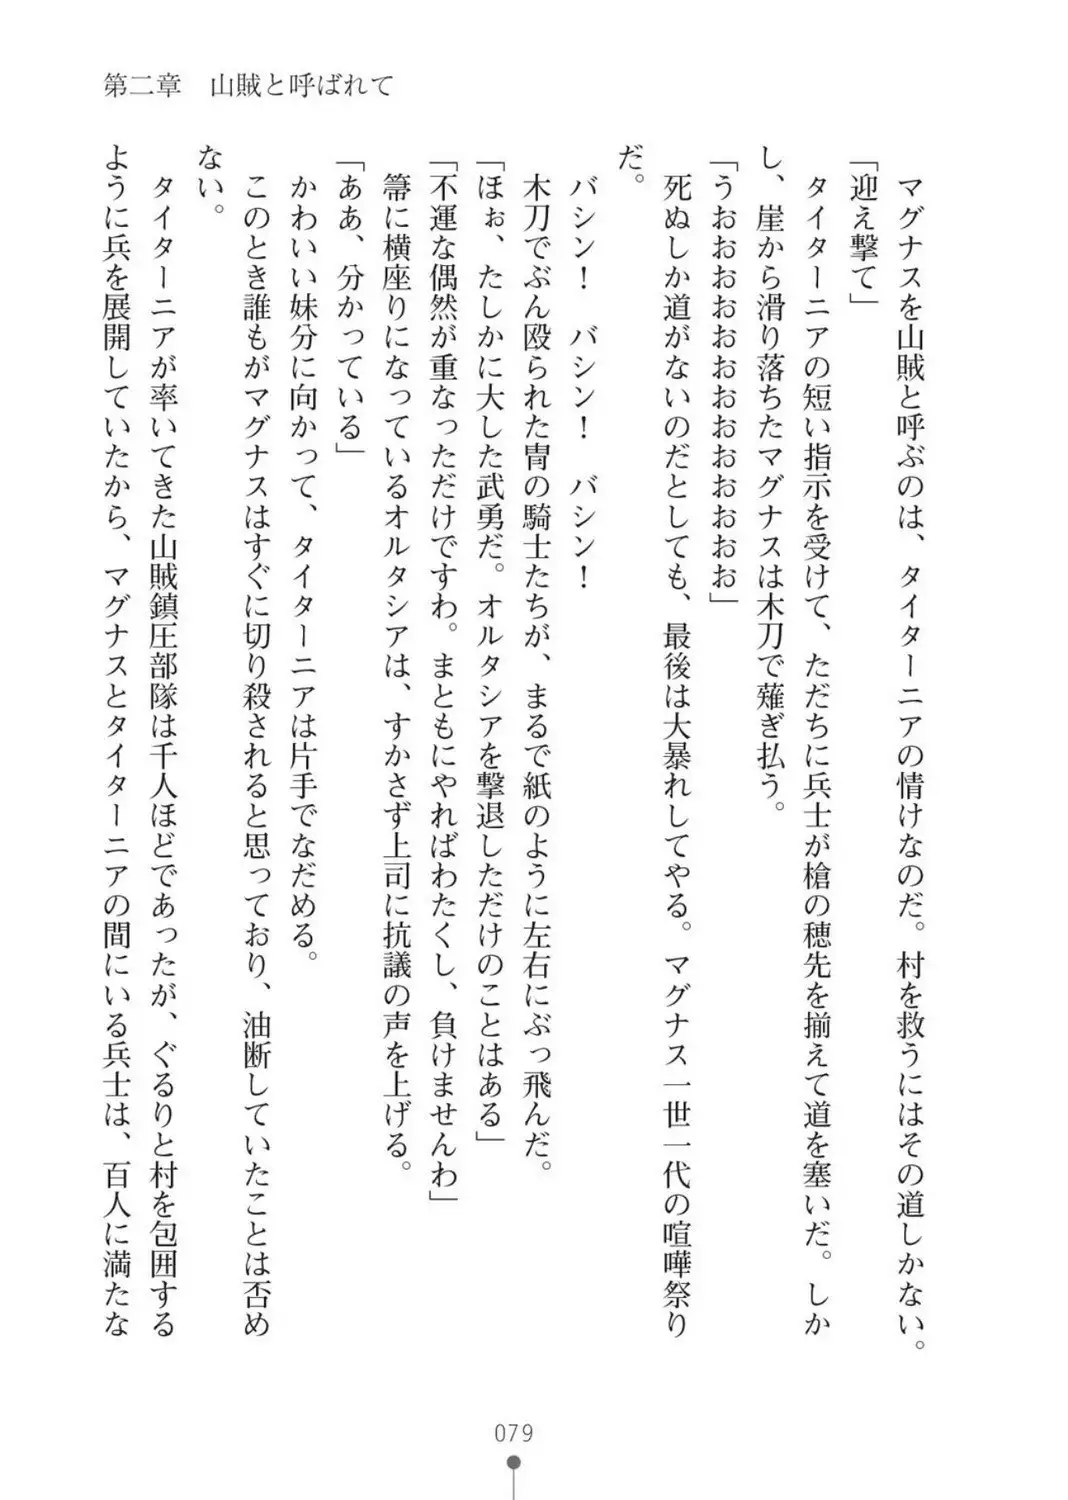 第二章　山賊と呼ばれて
　マグナスを山賊と呼ぶのは、タイターニアの情けなのだ。村を救うにはその道しかない。
「迎え撃て」
　タイターニアの短い指示を受けて、ただちに兵士が槍の穂先を揃えて道を塞いだ。しか
し、崖から滑り落ちたマグナスは木刀で薙ぎ払う。
「うおおおおおおおおおおおお」
　死ぬしか道がないのだとしても、最後は大暴れしてやる。マグナス一世一代の喧嘩祭り
だ。
　バシン！　バシン！　バシン！
　木刀でぶん殴られた冑の騎士たちが、まるで紙のように左右にぶっ飛んだ。
「ほぉ、たしかに大した武勇だ。オルタシアを撃退しただけのことはある」
「不運な偶然が重なっただけですわ。まともにやればわたくし、負けませんわ」
　箒に横座りになっているオルタシアは、すかさず上司に抗議の声を上げる。
「ああ、分かっている」
　かわいい妹分に向かって、タイターニアは片手でなだめる。
　このとき誰もがマグナスはすぐに切り殺されると思っており、油断していたことは否め
ない。
　タイターニアが率いてきた山賊鎮圧部隊は千人ほどであったが、ぐるりと村を包囲する
ように兵を展開していたから、マグナスとタイターニアの間にいる兵士は、百人に満たな
079